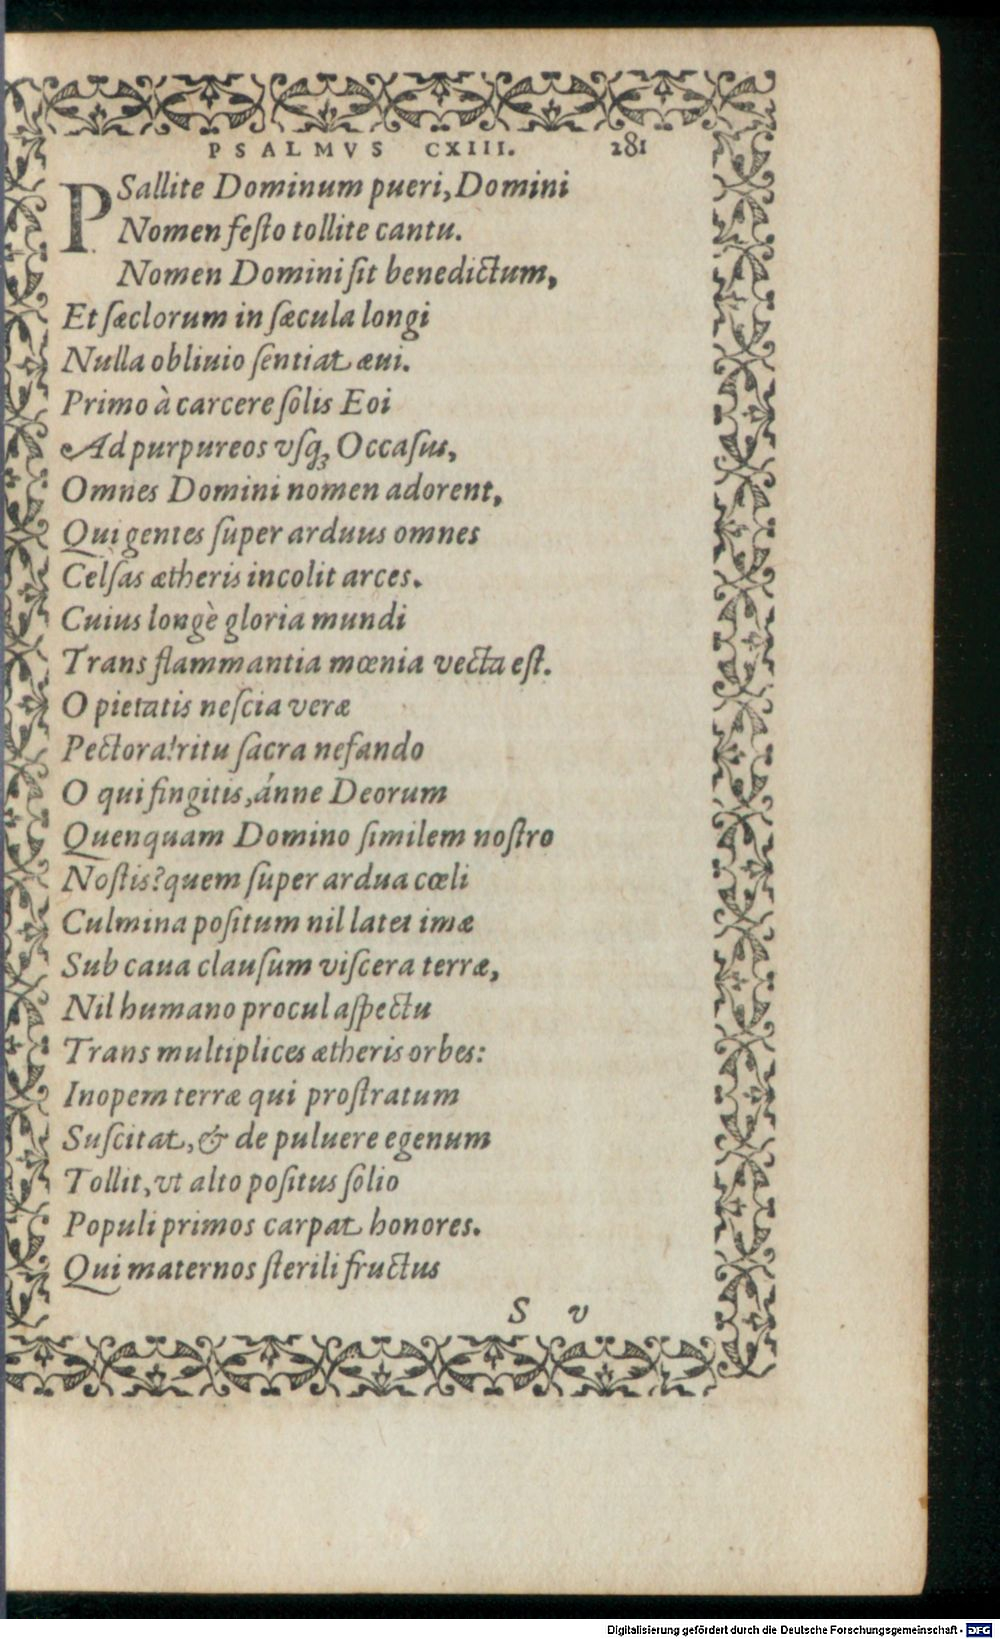 PSALMVS CXIII. 281
PSallite Dominum pueri, Domini
Nomen festo tollite cantu.
Nomen Domini sit benedictum,
Et sæclorum in sæcula longi
Nulla obliuio sentiat æui.
Primo à carcere solis Eoi
Ad purpureos vsq; Occasus,
Omnes Domini nomen adorent,
Qui gentes super arduus omnes
Celsas ætheris incolit arces.
Cuius longè gloria mundi
Trans flammantia mœnia vecta est.
O pietatis nescia veræ
Pectora! ritu sacra nefando
O qui fingitis, ánne Deorum
Quenquam Domino similem nostro
Nostis? quem super ardua cœli
Culmina positum nil latet imæ
Sub caua clausum viscera terræ,
Nil humano procul aspectu
Trans multiplices ætheris orbes:
Inopem terræ qui prostratum
Suscitat, & de puluere egenum
Tollit, vt alto positus solio
Populi primos carpat honores.
Qui maternos sterili fructus
S v
Digitalisierung gefördert durch die Deutsche Forschungsgemeinschaft - DFG